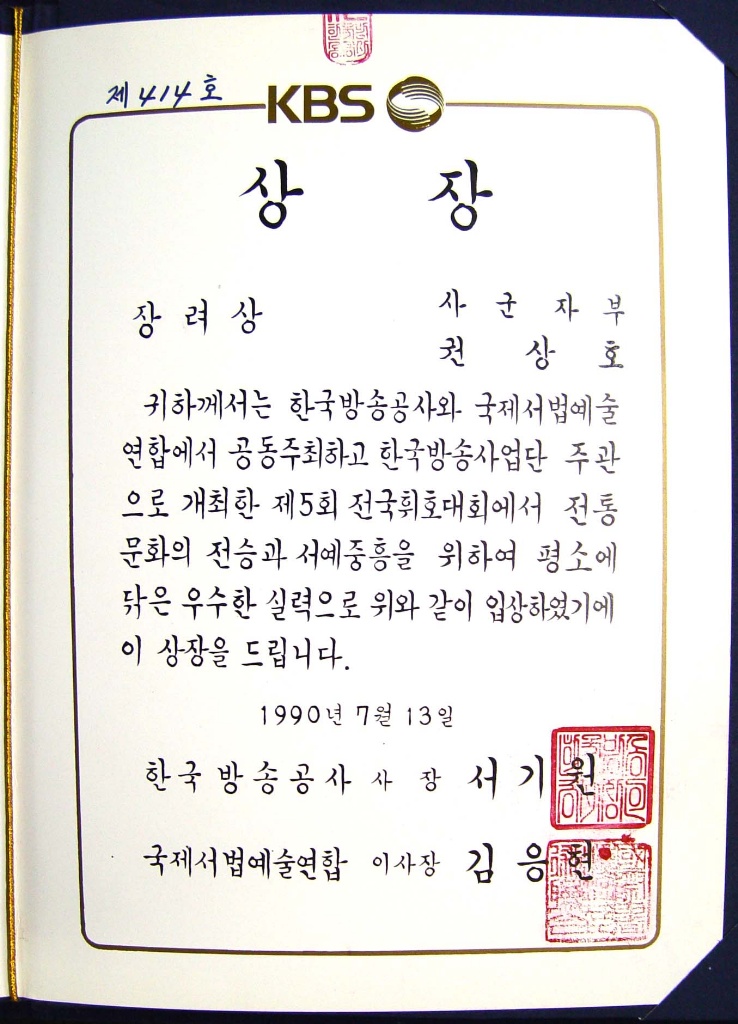 제 414 호
KBS
상 장
장 려 상
사 군 자 부
권 상 호
귀하께서는 한국방송공사와 국제서법예술
연합에서 공동주최하고 한국방송사업단 주관
으로 개최한 제5회 전국휘호대회에서 전통
문화의 전승과 서예중흥을 위하여 평소에
닦은 우수한 실력으로 위와 같이 입상하였기에
이 상장을 드립니다.
1990년 7월 13일
한국방송공사 사 장 서 기 원
국제서법예술연합 이사장 김 응 현